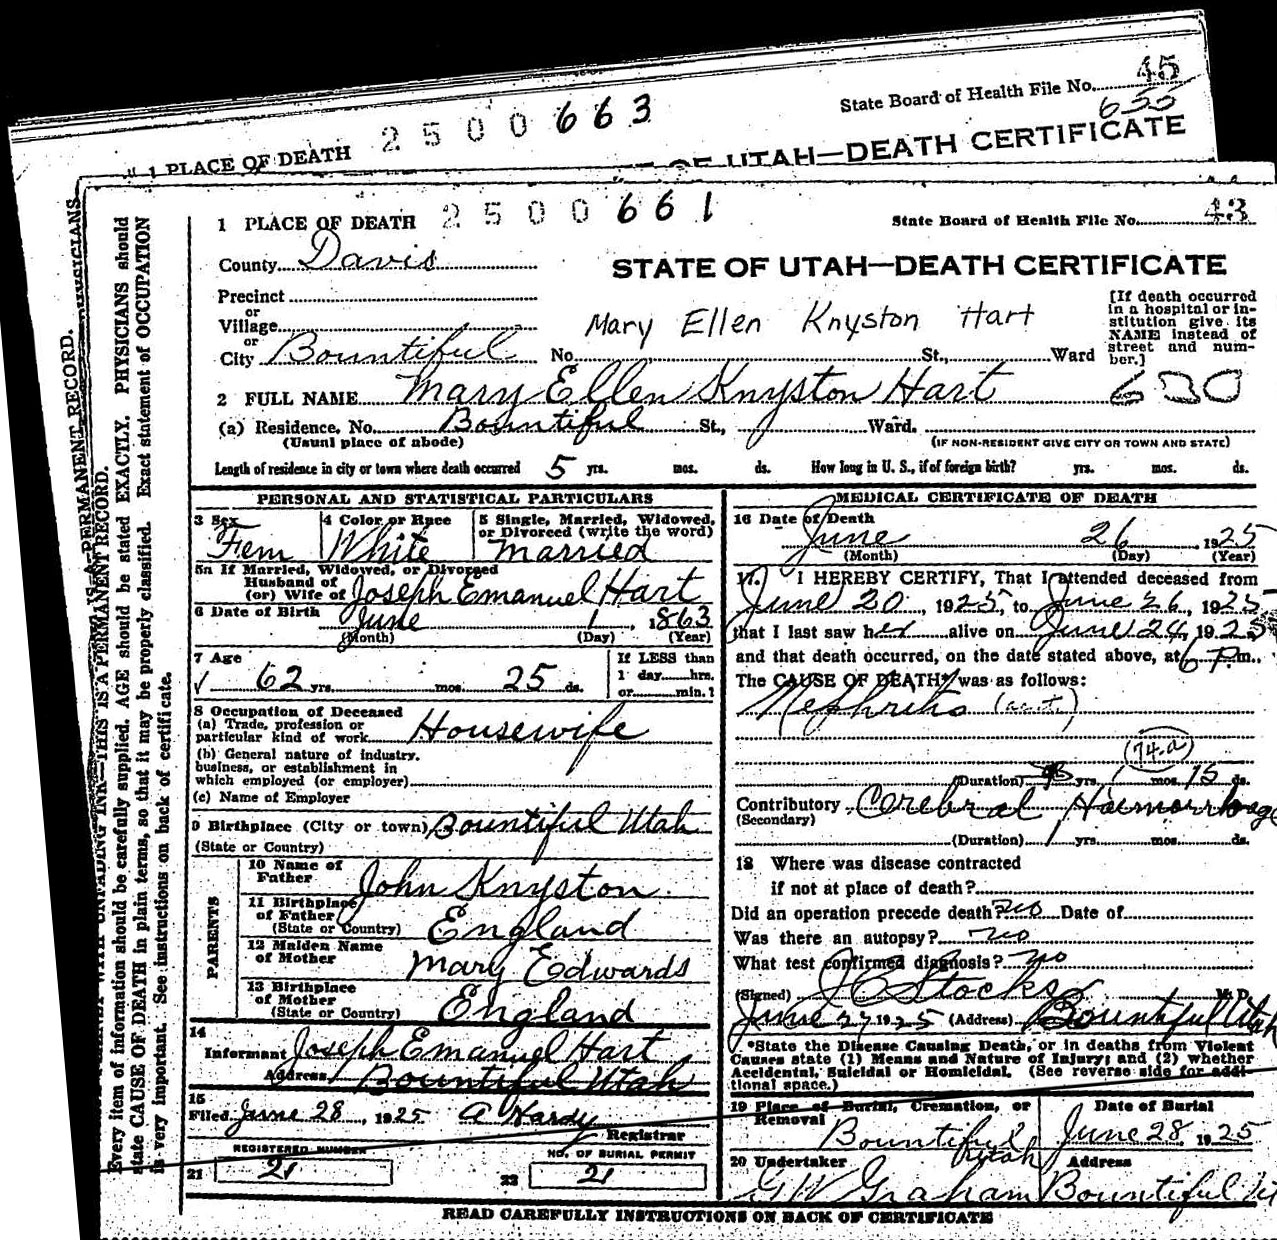 State Board of Health File No. 45
655
1 PLACE OF DEATH 2500663
OF UTAH—DEATH CERTIFICATE
1 PLACE OF DEATH 2500661
State Board of Health File No. 43
County Davis
STATE OF UTAH—DEATH CERTIFICATE
Precinct
or
Village
or
City Bountiful No. St., Ward
Mary Ellen Knyston Hart
[If death occurred in a hospital or institution give its NAME instead of street and number.]
630
2 FULL NAME Mary Ellen Knyston Hart
(a) Residence, No. Bountiful St., Ward.
(Usual place of abode) (IF NON-RESIDENT GIVE CITY OR TOWN AND STATE)
Length of residence in city or town where death occurred 5 yrs. mos. ds. How long in U. S., if of foreign birth? yrs. mos. ds.
PERSONAL AND STATISTICAL PARTICULARS
3 Sex Fem
4 Color or Race White
5 Single, Married, Widowed, or Divorced (write the word) Married
5a If Married, Widowed, or Divorced
Husband of
(or) Wife of Joseph Emanuel Hart
6 Date of Birth June 1, 1863
(Month) (Day) (Year)
7 Age
62 yrs. mos. 25 ds.
If LESS than
1 day hrs.
or min.?
8 Occupation of Deceased
(a) Trade, profession or
particular kind of work Housewife
(b) General nature of industry,
business, or establishment in
which employed (or employer)
(c) Name of Employer
9 Birthplace (City or town) Bountiful Utah
(State or Country)
PARENTS
10 Name of
Father John Knyston
11 Birthplace
of Father
(State or Country) England
12 Maiden Name
of Mother Mary Edwards
13 Birthplace
of Mother
(State or Country) England
14
Informant Joseph Emanuel Hart
Address Bountiful Utah
15
Filed June 28, 1925 A Hardy
Registrar
REGISTERED NUMBER
21 21
NO. OF BURIAL PERMIT
22 21
MEDICAL CERTIFICATE OF DEATH
16 Date of Death
June 26, 1925
(Month) (Day) (Year)
17. I HEREBY CERTIFY, That I attended deceased from
June 20, 1925, to June 26, 1925
that I last saw her alive on June 24, 1925
and that death occurred, on the date stated above, at 6 P m.
The CAUSE OF DEATH* was as follows:
Nephritis
74.a
(Duration) yrs. 1 mos. 15 ds.
Contributory Cerebral Haemorrhage
(Secondary)
(Duration) 1 yrs. mos. ds.
18 Where was disease contracted
if not at place of death?
Did an operation precede death? no Date of
Was there an autopsy? no
What test confirmed diagnosis? no
(Signed) J C Stocks M. D.
June 27 1925 (Address) Bountiful Utah
*State the Disease Causing Death, or in deaths from Violent
Causes state (1) Means and Nature of Injury; and (2) whether
Accidental, Suicidal or Homicidal. (See reverse side for addi-
tional space.)
19 Place of Burial, Cremation, or
Removal
Bountiful Utah
Date of Burial
June 28, 1925
20 Undertaker
G W Graham
Address
Bountiful
READ CAREFULLY INSTRUCTIONS ON BACK OF CERTIFICATE
WITH UNFADING INK—THIS IS A PERMANENT RECORD.
Every item of information should be carefully supplied. AGE should be stated EXACTLY. PHYSICIANS should
state CAUSE OF DEATH in plain terms, so that it may be properly classified. Exact statement of OCCUPATION
is very important. See instructions on back of certificate.
PERMANENT RECORD.
PHYSICIANS